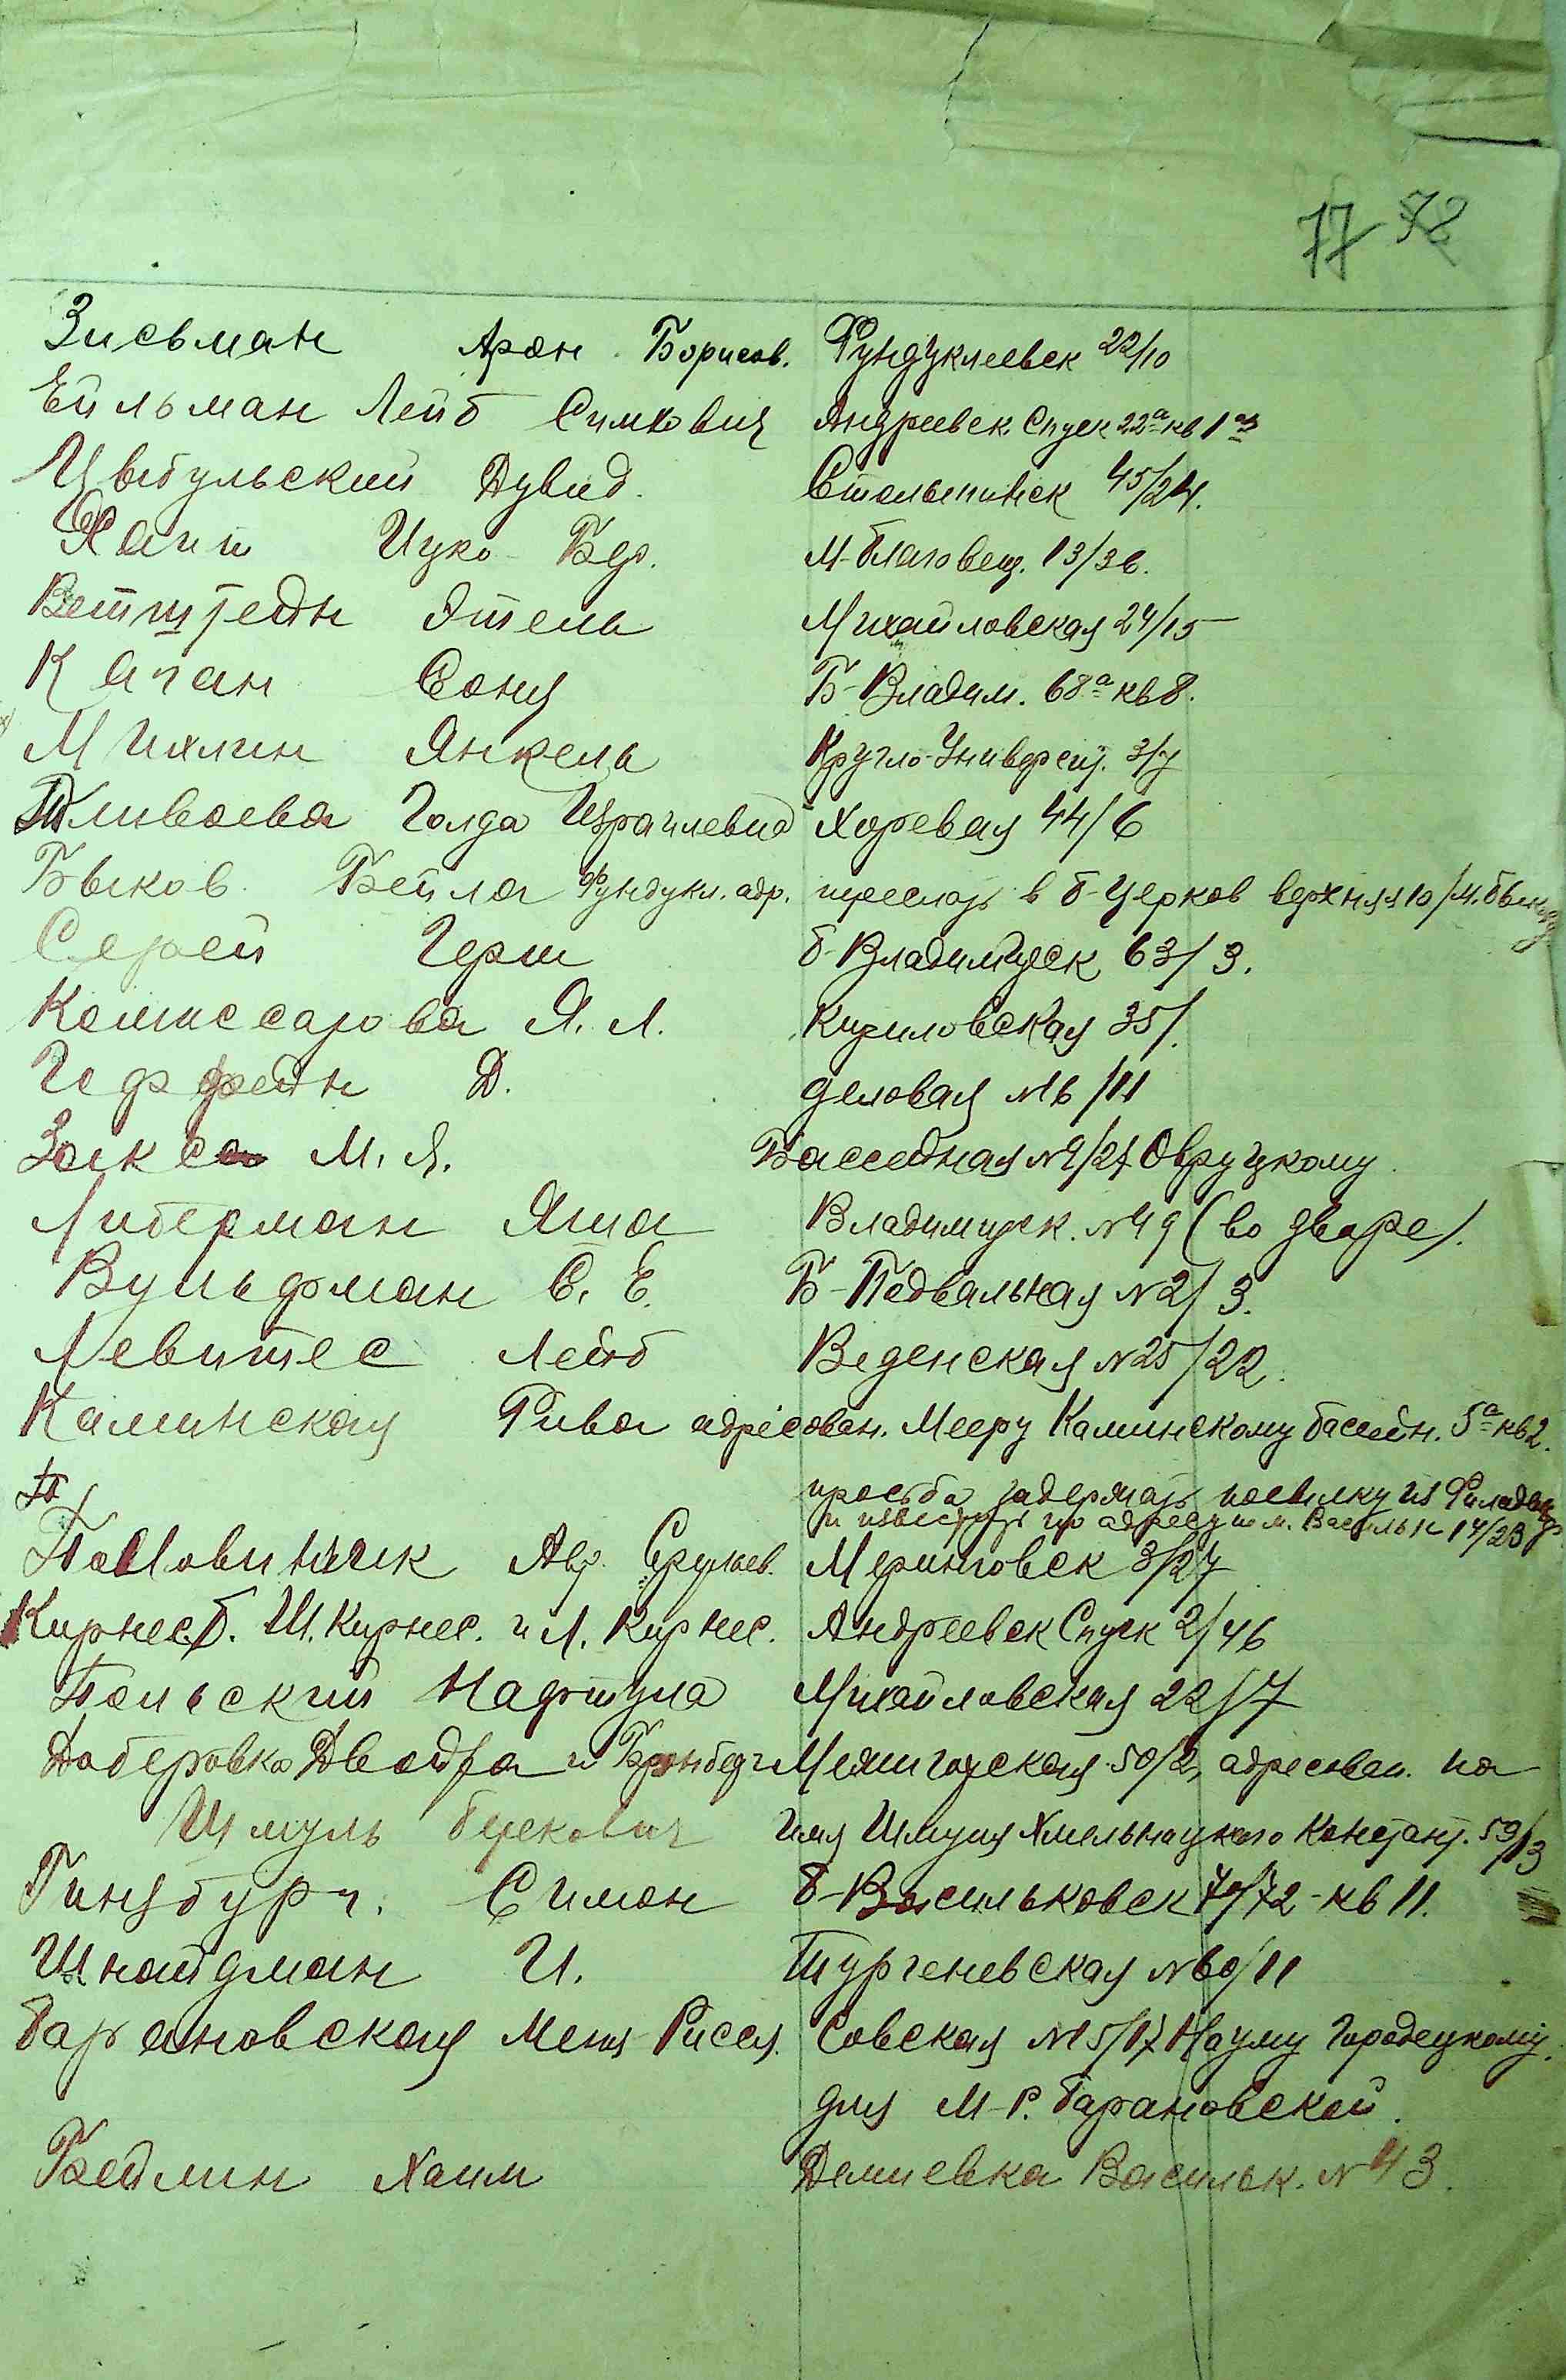 77 78
Зисьман Арон Борисов. Фундуклеевск 22/10
Ейльман Лейб Симхович Андреевск Спуск 22а кв 1а
Цыбульский Дувид. Столыпинск 45/24.
Хаит Ицко Бер. М-Благовещ. 13/36.
Ветштейн Этель Михайловская 24/15
Каган Соня Б-Владим. 68а кв 8.
Михлин Янкель Кругло-Университ. 3/7
Голда Израилевна Хоревая 44/6
Быков Бейла Фундукл. адр. переслать в б-Церков верхняя 10/М.
Серей Герш б-Владимирск 63/3.
Комиссарова Я. Л. Кириловская 35/.
Геффейн Д. Деловая №6/11
Закс М. Я. Бассейная №9/27 Овруцкому
Либерман Яша Владимирск. №49 (во дворе).
Вульфман С. Е. Б-Подвальная №2/3.
Левитес Лейб Веденская №25/22.
Каминская Рива адресован. Мееру Каминскому бассейн. 5а кв 2.
просьба задержать посылку из
и известить по адресу Васильк 14/23
Авр. Срулев. Меринговск 3/27
Кирнес Б. Ш. Кирнес. и Л. Кирнес. Андреевск Спуск 2/46
Польский Нафтула Михайловская 22/7
Доберовка Двойра и Межигорская 50/2, адресован. на
Шмуль Берекович имя Шмуля Хмельницкого Констант. 59/13
Гинзбург. Симон б-Васильковск 70/72 - кв 11.
Шнайдман И. Тургеневская №60/11
Барановская Меня Рися. Совская №15/17 Науму Городецкому.
для М-Р. Барановской.
Бейлин Хаим Демиевка Васильк. №43.